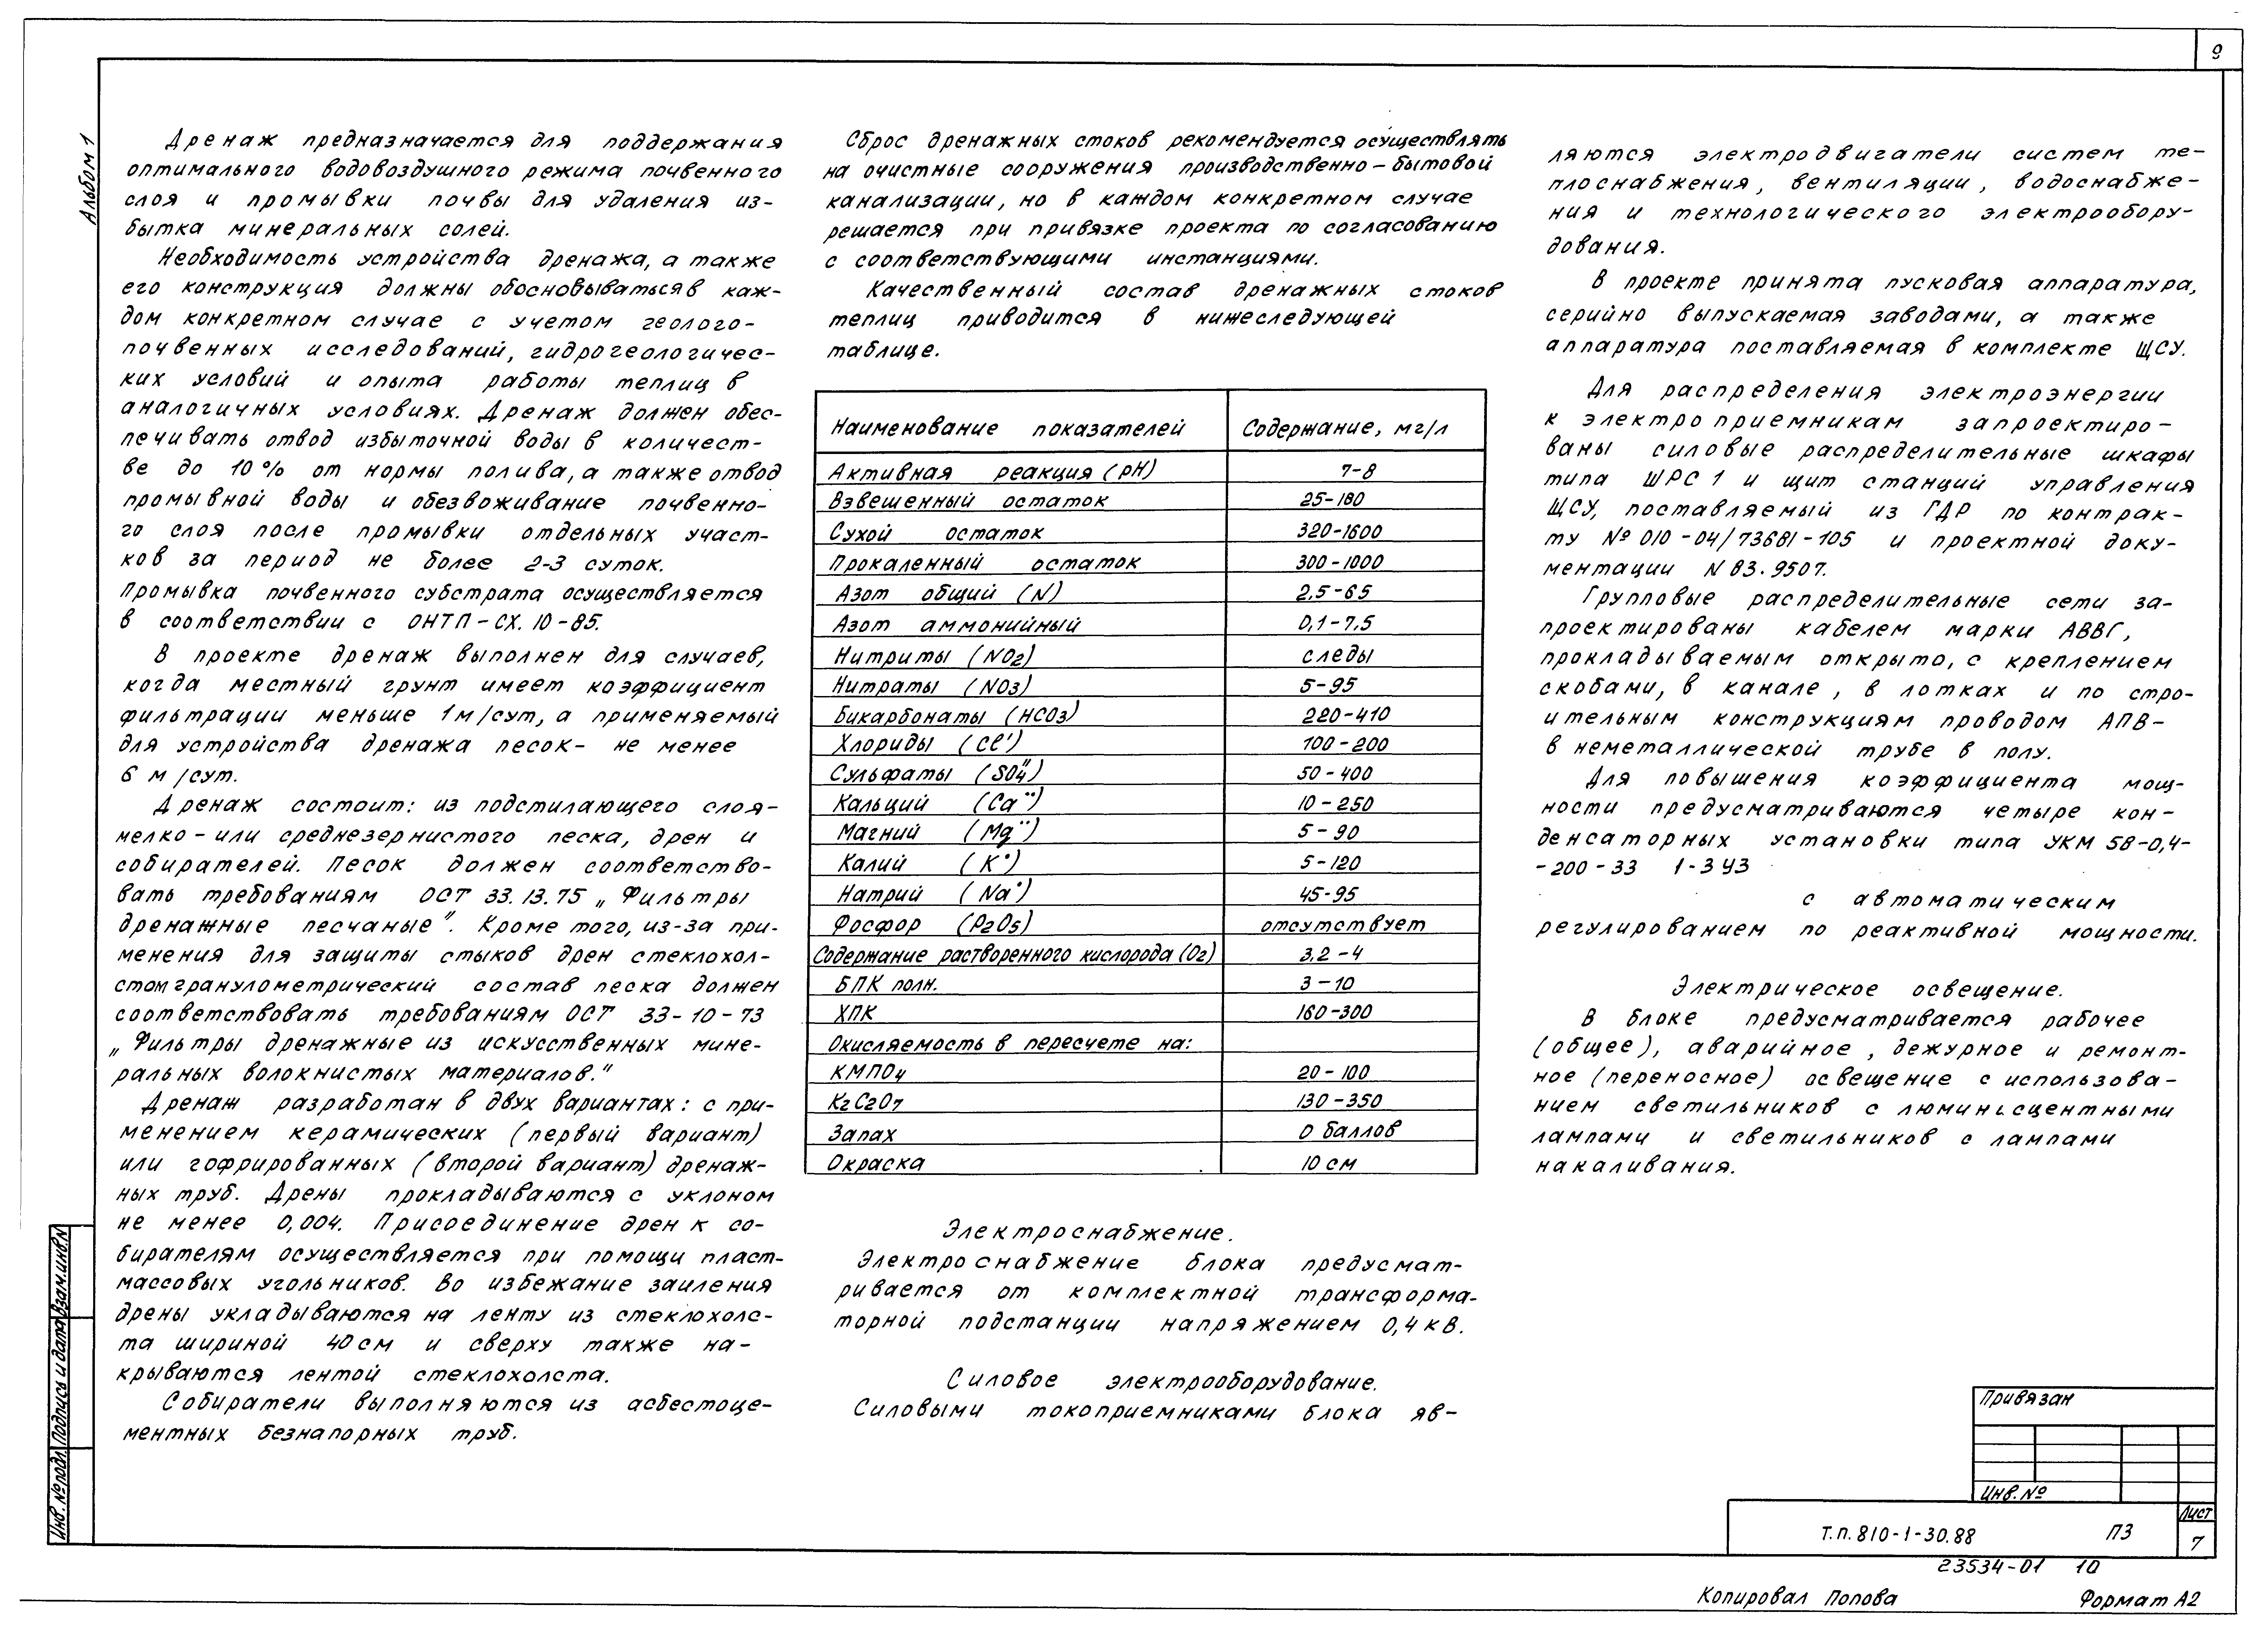 9
Альбом 1
Дренаж предназначается для поддержания
оптимального водовоздушного режима почвенного
слоя и промывки почвы для удаления из-
бытка минеральных солей.
Необходимость устройства дренажа, а также
его конструкция должны обосновываться в каж-
дом конкретном случае с учетом геолого-
почвенных исследований, гидрогеологичес-
ких условий и опыта работы теплиц в
аналогичных условиях. Дренаж должен обес-
печивать отвод избыточной воды в количест-
ве до 10% от нормы полива, а также отвод
промывной воды и обезвоживание почвенно-
го слоя после промывки отдельных участ-
ков за период не более 2-3 суток.
Промывка почвенного субстрата осуществляется
в соответствии с ОНТП-СХ. 10-85.
В проекте дренаж выполнен для случаев,
когда местный грунт имеет коэффициент
фильтрации меньше 1м/сут, а применяемый
для устройства дренажа песок- не менее
6 м/сут.
Дренаж состоит: из подстилающего слоя-
мелко-или среднезернистого песка, дрен и
собирателей. Песок должен соответство-
вать требованиям ОСТ 33.13.75 „Фильтры
дренажные песчаные". Кроме того, из-за при-
менения для защиты стыков дрен стеклохол-
стом гранулометрический состав песка должен
соответствовать требованиям ОСТ 33-10-73
„Фильтры дренажные из искусственных мине-
ральных волокнистых материалов."
Дренаж разработан в двух вариантах: с при-
менением керамических (первый вариант)
или гофрированных (второй вариант) дренаж-
ных труб. Дрены прокладываются с уклоном
не менее 0,004. Присоединение дрен к со-
бирателям осуществляется при помощи пласт-
массовых угольников. Во избежание заиления
дрены укладываются на ленту из стеклохолс-
та шириной 40см и сверху также на-
крываются лентой стеклохолста.
Собиратели выполняются из асбестоце-
ментных безнапорных труб.
Сброс дренажных стоков рекомендуется осуществлять
на очистные сооружения производственно-бытовой
канализации, но в каждом конкретном случае
решается при привязке проекта по согласованию
с соответствующими инстанциями.
Качественный состав дренажных стоков
теплиц приводится в нижеследующей
таблице.
Наименование показателей Содержание, мг/л
Активная реакция (рН) 7-8
Взвешенный остаток 25-180
Сухой остаток 320-1600
Прокаленный остаток 300-1000
Азот общий (N) 2,5-65
Азот аммонийный 0,1-7,5
Нитриты (NO2) следы
Нитраты (NO3) 5-95
Бикарбонаты (HCO3) 220-410
Хлориды (Cl') 100-200
Сульфаты (SO4") 50-400
Кальций (Ca¨) 10-250
Магний (Mg¨) 5-90
Калий (K˙) 5-120
Натрий (Na˙) 45-95
Фосфор (P2O5) отсутствует
Содержание растворенного кислорода (O2) 3,2-4
БПК полн. 3-10
ХПК 160-300
Окисляемость в пересчете на:
КМПО4 20-100
K2C2O7 130-350
Запах 0 баллов
Окраска 10 см
Электроснабжение.
Электроснабжение блока предусмат-
ривается от комплектной трансформа-
торной подстанции напряжением 0,4 кВ.
Силовое электрооборудование.
Силовыми токоприемниками блока яв-
ляются электродвигатели систем те-
плоснабжения, вентиляции, водоснабже-
ния и технологического электрообору-
дования.
В проекте принята пусковая аппаратура,
серийно выпускаемая заводами, а также
аппаратура поставляемая в комплекте ЩСУ.
Для распределения электроэнергии
к электроприемникам запроектиро-
ваны силовые распределительные шкафы
типа ШРС 1 и щит станций управления
ЩСУ, поставляемый из ГДР по контрак-
ту № 010-04/73681-105 и проектной доку-
ментации N 83.9507.
Групповые распределительные сети за-
проектированы кабелем марки АВВГ,
прокладываемым открыто, с креплением
скобами, в канале, в лотках и по стро-
ительным конструкциям проводом АПВ-
в неметаллической трубе в полу.
Для повышения коэффициента мощ-
ности предусматриваются четыре кон-
денсаторных установки типа УКМ 58-0,4-
-200-33 1-3 У3
с автоматическим
регулированием по реактивной мощности.
Электрическое освещение.
В блоке предусматривается рабочее
(общее), аварийное, дежурное и ремонт-
ное (переносное) освещение с использова-
нием светильников с люминесцентными
лампами и светильников с лампами
накаливания.
Инв. № подл. Подпись и дата Взам.инв.N
Привязан
Инв. №
Т.П. 810-1-30.88 ПЗ
Лист
7
23534-01 10
Копировал Попова Формат А2